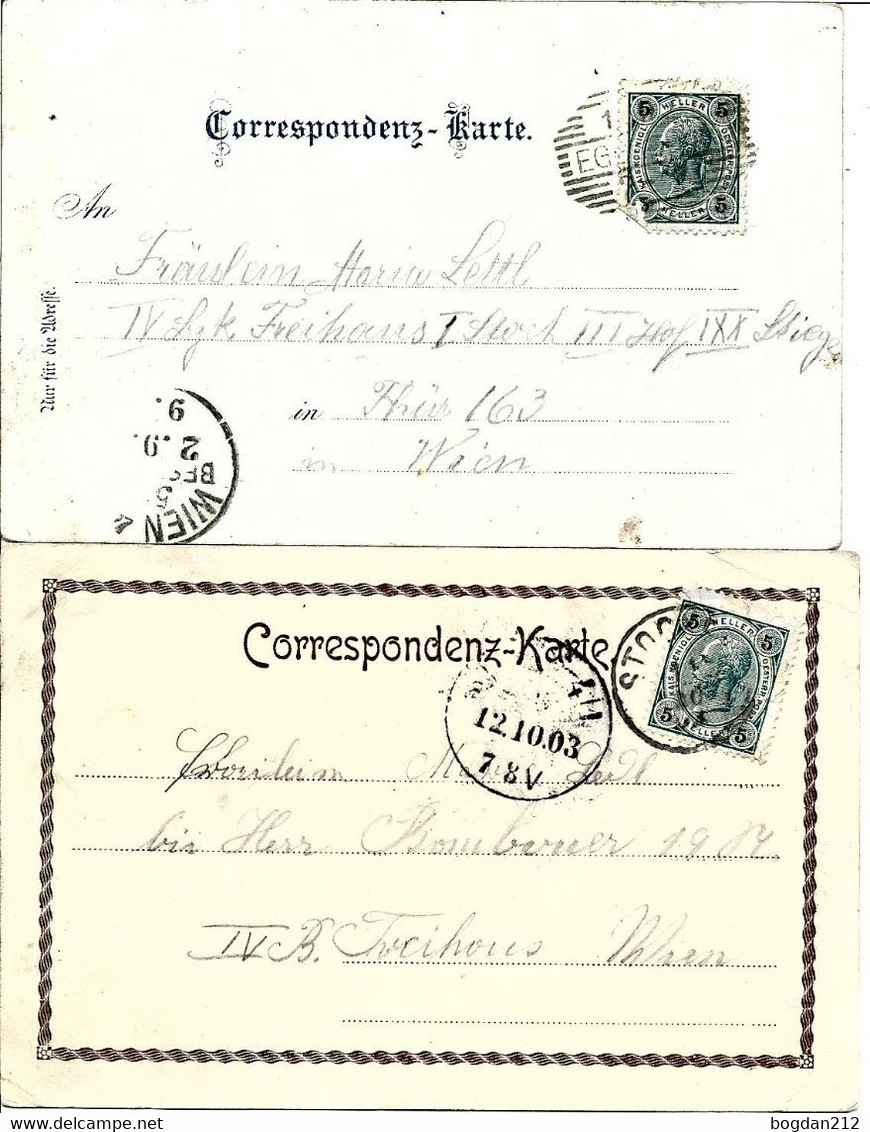 Correspondenz-Karte.
5 HELLER 5
KAIS. KOENIGL. OESTERR. POST
5 HELLER 5
1
EG
An
Fräulein Maria Lettl
IV Bzk Freihaus I Stock III Hof IXX Stiege
in Thür 163
in Wien
Nur für die Adresse.
9.
2.9.
BES
5
WIEN 4
Correspondenz-Karte.
STOC
5 HELLER 5
KAIS. KOENIGL. OESTERR. POST
5 HELLER 5
4/1
12.10.03
7-8V
bei Herr
IV B. Freihaus Wien
delcampe.net
bogdan212